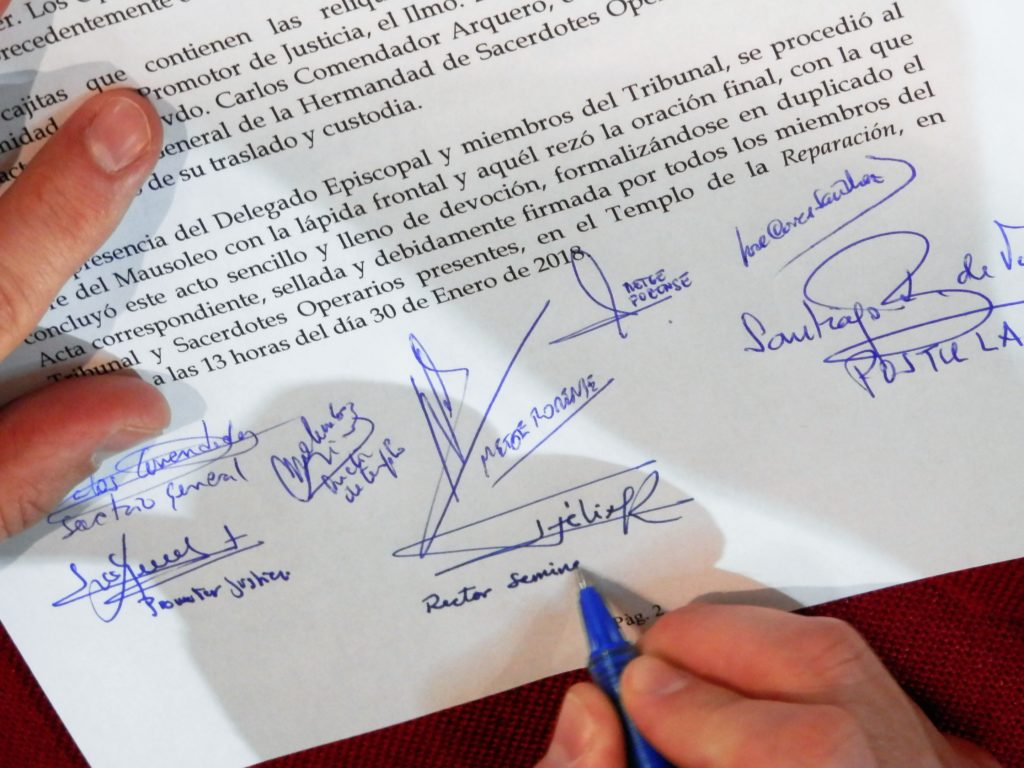 er. Los Op
precedentemente
cajitas que contienen las reliqu
nidad Promotor de Justicia, el Ilmo.
vdo. Carlos Comendador Arquero,
General de la Hermandad de Sacerdotes Oper
de su traslado y custodia.
presencia del Delegado Episcopal y miembros del Tribunal, se procedió al
e del Mausoleo con la lápida frontal y aquél rezó la oración final, con la que
concluyó este acto sencillo y lleno de devoción, formalizándose en duplicado el
Acta correspondiente, sellada y debidamente firmada por todos los miembros del
Tribunal y Sacerdotes Operarios presentes, en el Templo de la Reparación, en
a las 13 horas del día 30 de Enero de 2018.
METGE
FORENSE
METGE FORENSE
Santiago
POSTULA
general
Promotor Justicia
Rector Semina
Pàg. 2